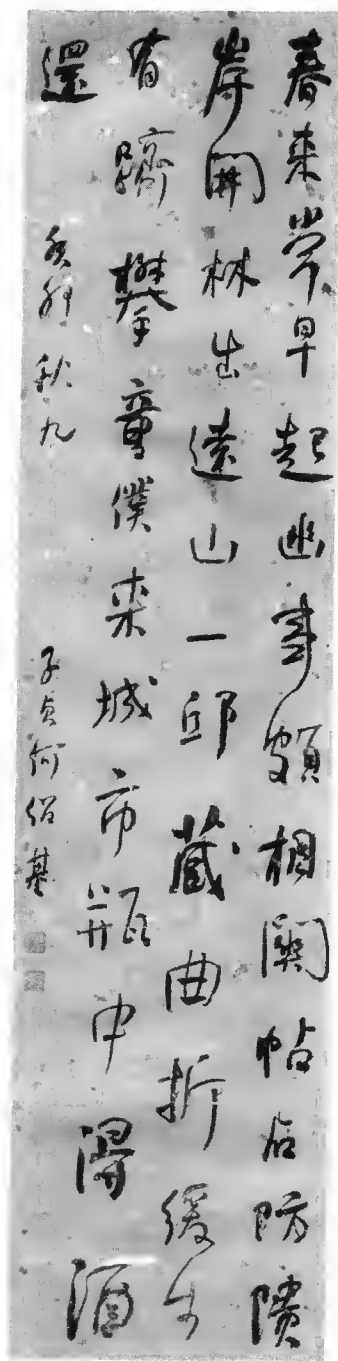 春来常早起幽事頗相關帖石防隤
岸開林出遠山一邱蔵曲折緩步
有躋攀童僕来城市瓶中得酒
還
癸卯秋九
子貞何紹基